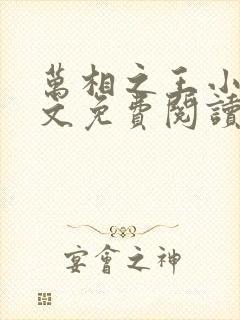 萬相之王小
文免費閱讀
宴會之神